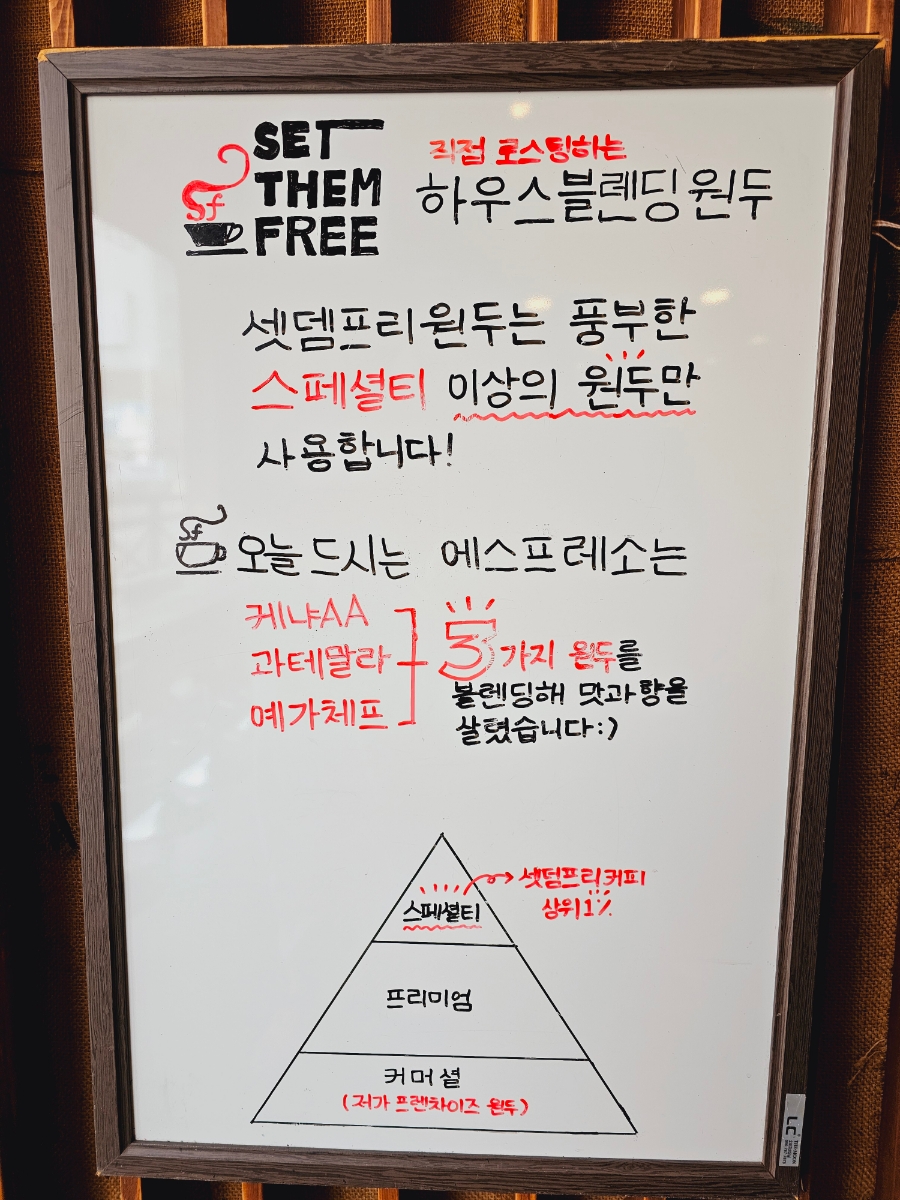 SET
THEM
FREE
Sf
직접 로스팅하는
하우스블렌딩원두
셋뎀프리원두는 풍부한
스페셜티 이상의 원두만
사용합니다!
Sf
오늘 드시는 에스프레소는
케냐AA
과테말라
예가체프
3가지 원두를
블렌딩해 맛과 향을
살렸습니다:)
스페셜티
셋덤프리커피
상위1%
프리미엄
커머셜
(저가 프렌차이즈 원두)
LC